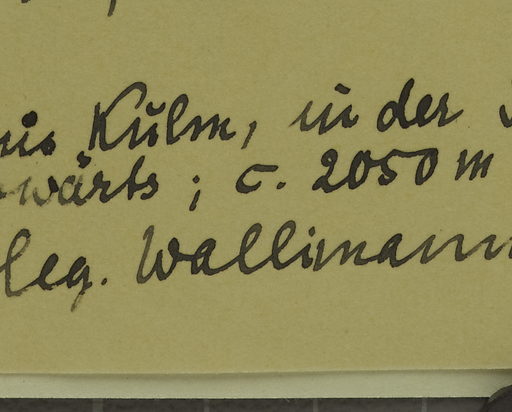 Kulm, in der
wärts; c. 2050 m
leg. Wallimann